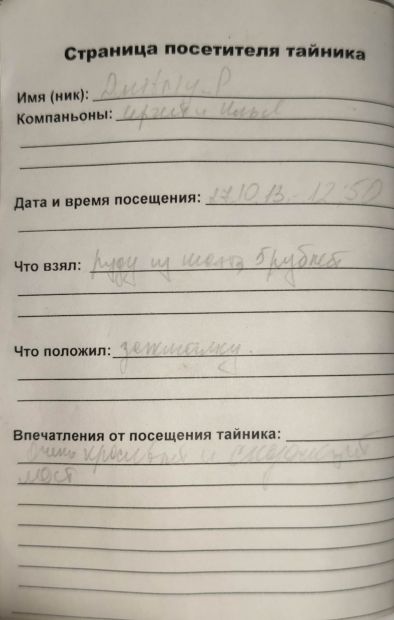 Страница посетителя тайника
Имя (ник): Dmitriy_P
Компаньоны: Сергей и Илья
Дата и время посещения: 27.10.13 - 12:50
Что взял: руду из шахты, 5 рублей
Что положил: зажигалку.
Впечатления от посещения тайника:
Очень красивый и
мост